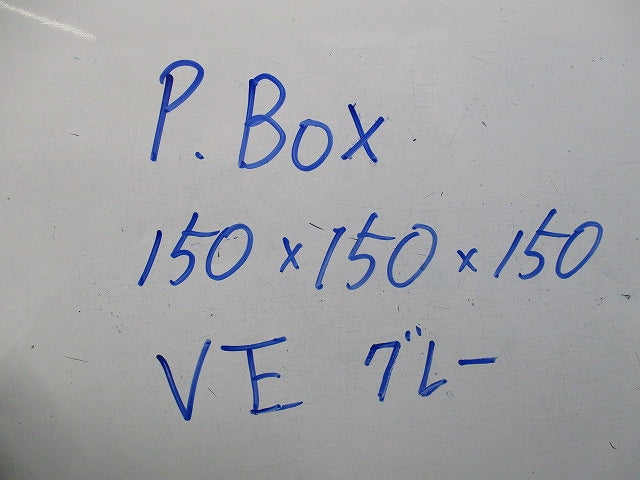 P. Box
150×150×150
VE グレー